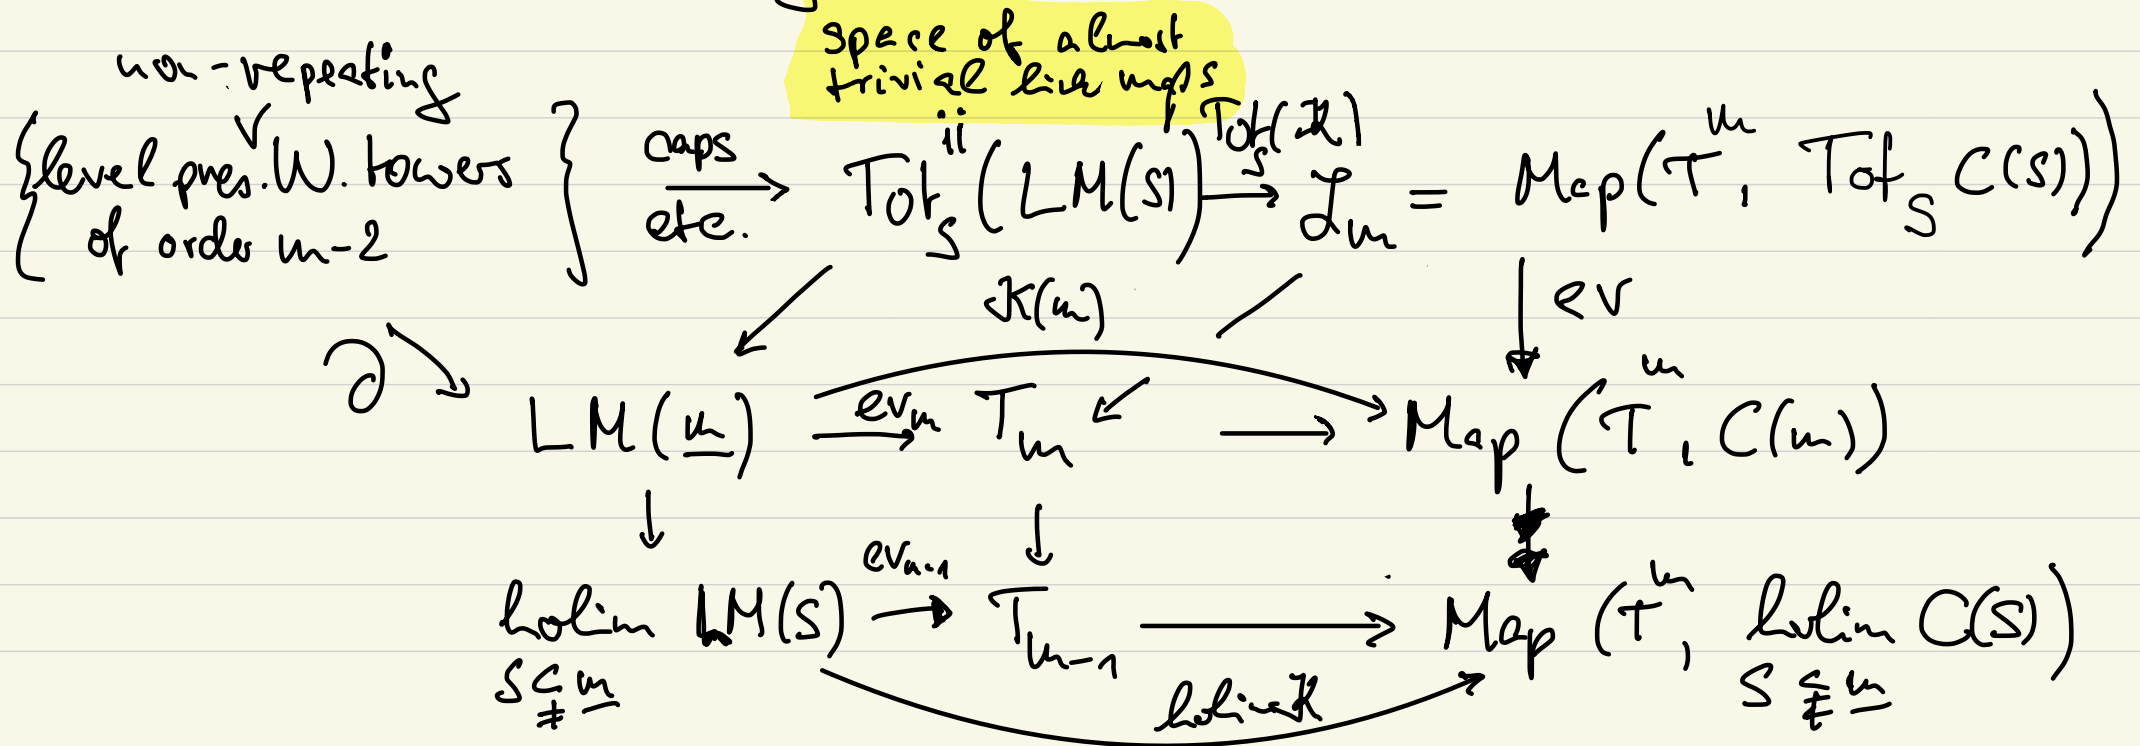 space of almost
trivial link maps
non-repeating
{level pres. W. towers of order m-2} caps etc. → Tot_S(LM(S)) Tot_S(K) → L_m = Map(T^m, Tot_S C(S))
∂ K(m) ev
LM(m) ev_m → T_m → Map(T^m, C(m))
holim LM(S) ev_{m-1} → T_{m-1} → Map(T^m, holim C(S))
S ⊊ m holim K S ⊊ m